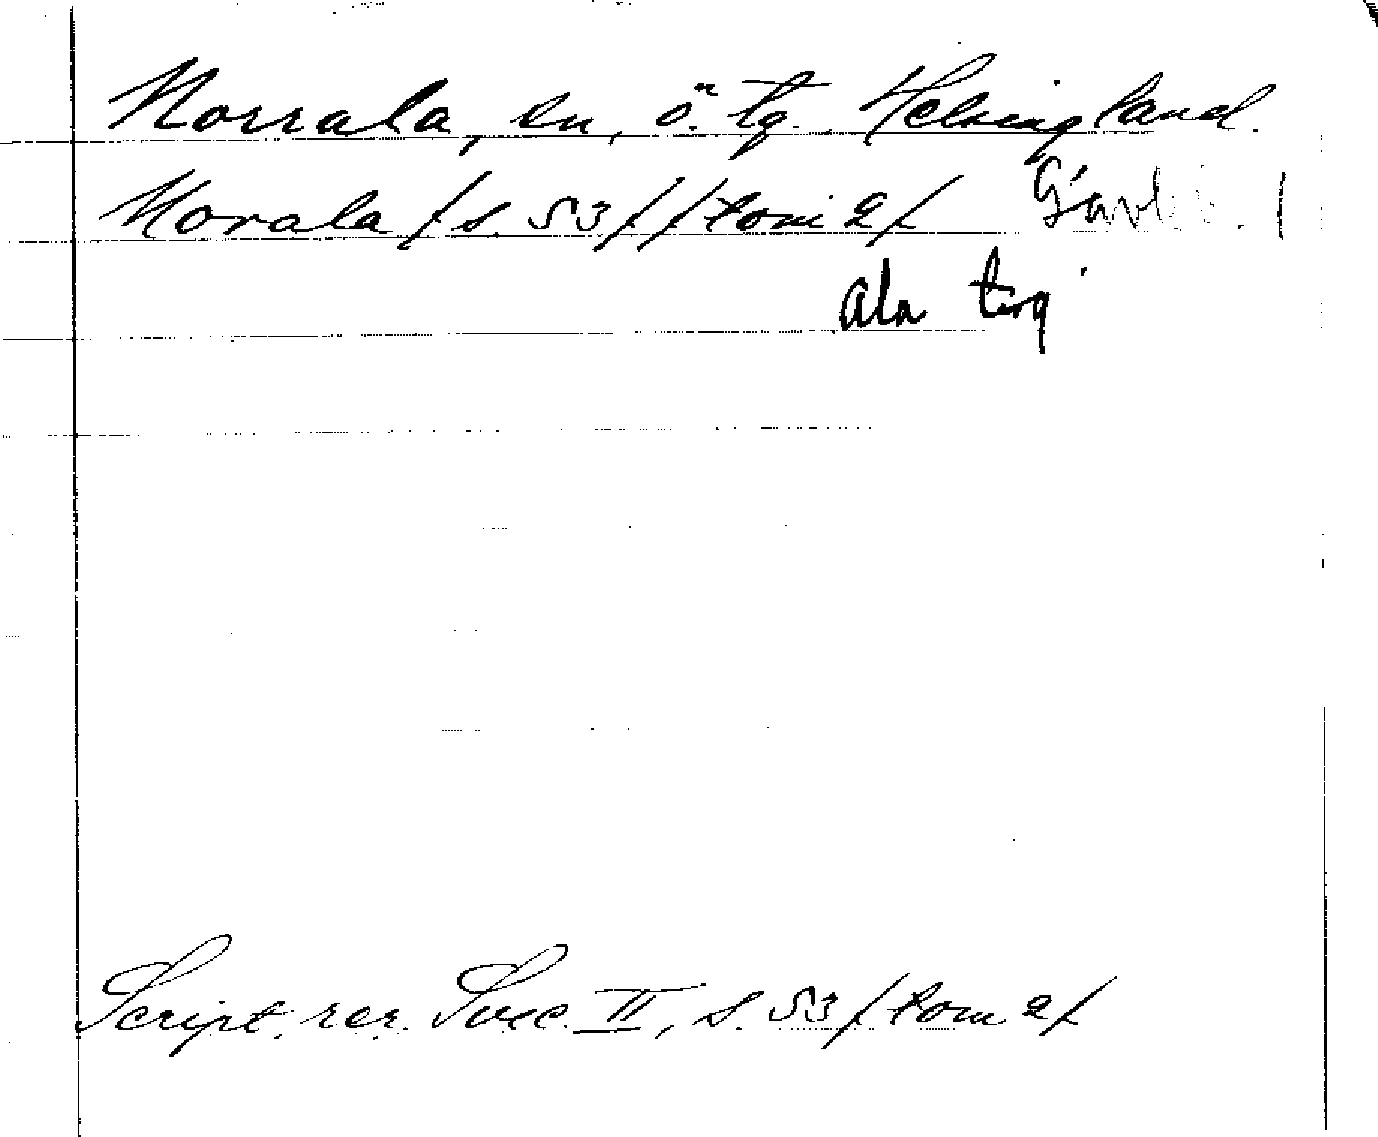 Norrala, sn, ö. tg. Helsingland.
Norala /s. 53/ /tom 2/
Ala tsg
Script. rer. Svec. II, s. 53 /tom 2/